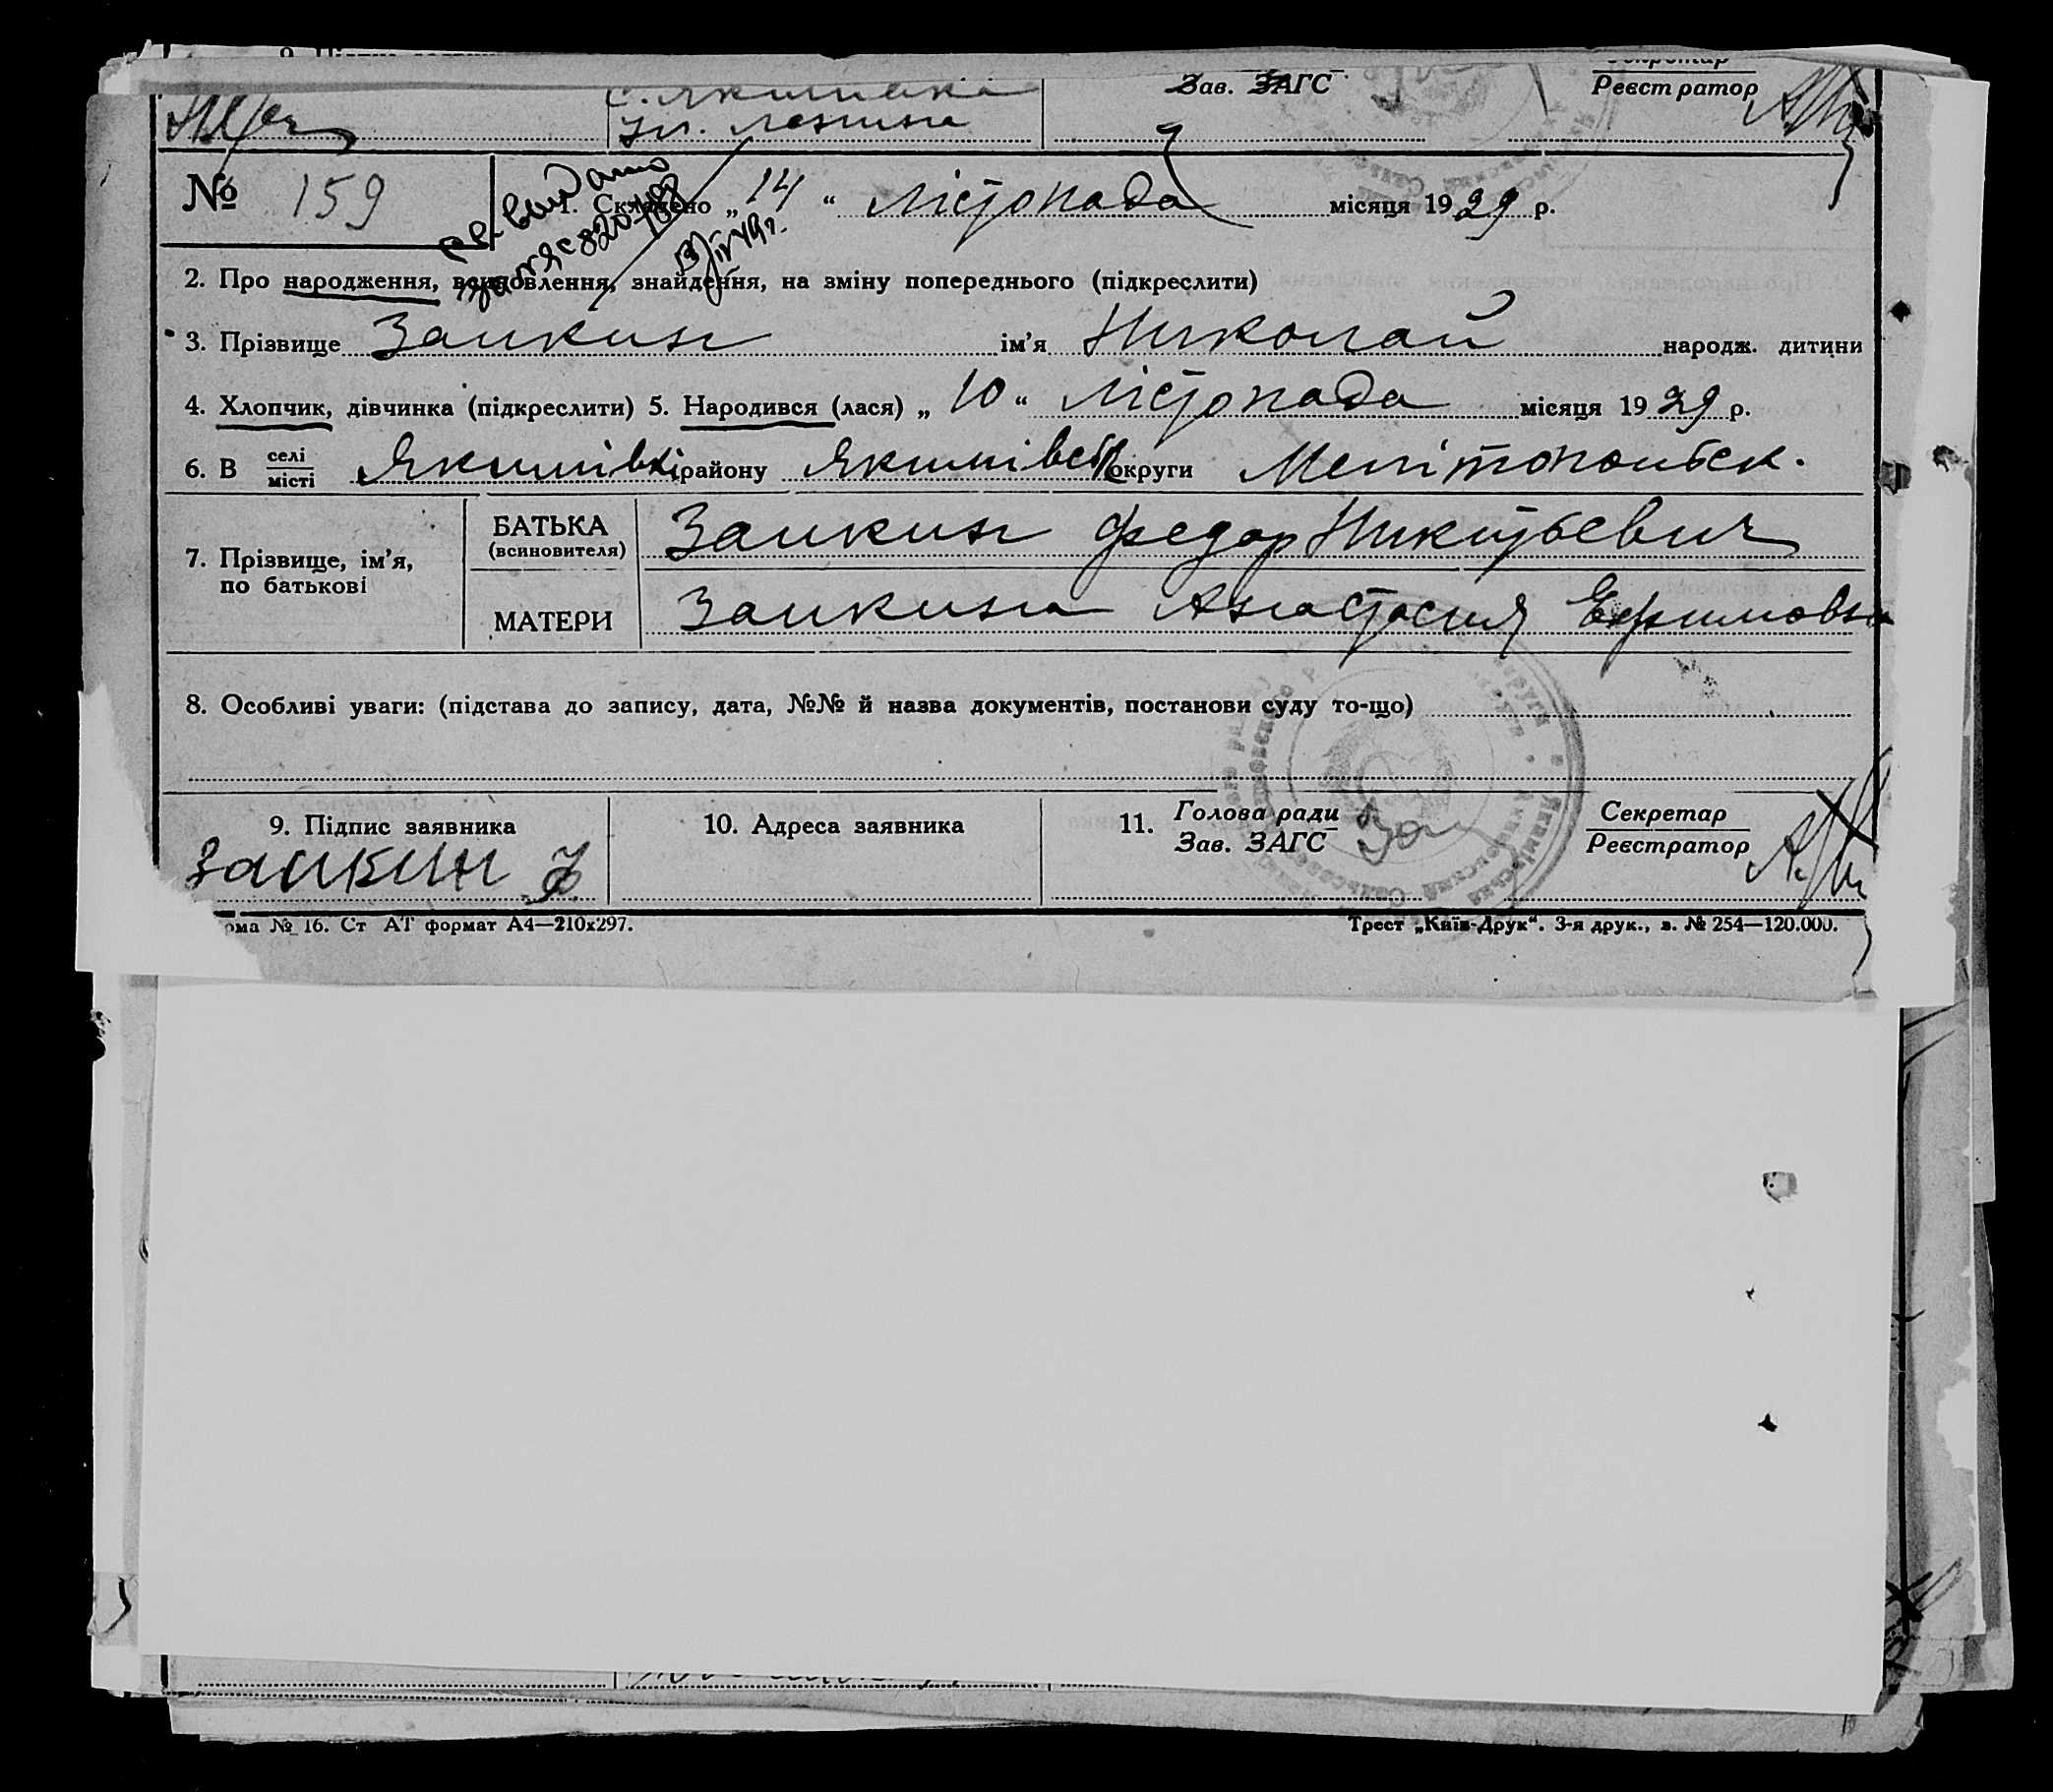 с. Якимивка
ул. Ленина
Зав. ЗАГС
Секретар
Реєстратор
№ 159
1. Складено „14“ лістопада місяця 1929 р.
2. Про народження, всиновлення, знайдення, на зміну попереднього (підкреслити)
3. Прізвище Заикин ім’я Николай народж. дитини
4. Хлопчик, дівчинка (підкреслити) 5. Народився (лася) „10“ лістопада місяця 1929 р.
6. В селі місті Якимівкі району Якимівськ округи Мелітопольск.
7. Прізвище, ім’я, по батькові
БАТЬКА (всиновителя) Заикин Федор Никитьевич
МАТЕРИ Заикина Анастасия Ефимовна
8. Особливі уваги: (підстава до запису, дата, №№ й назва документів, постанови суду то-що)
9. Підпис заявника
Заикин Ф
10. Адреса заявника
11. Голова ради
Зав. ЗАГС
Секретар
Реєстратор
рма № 16. Ст АТ формат А4—210х297.
Трест „Київ-Друк“. 3-я друк., з. № 254—120.000.